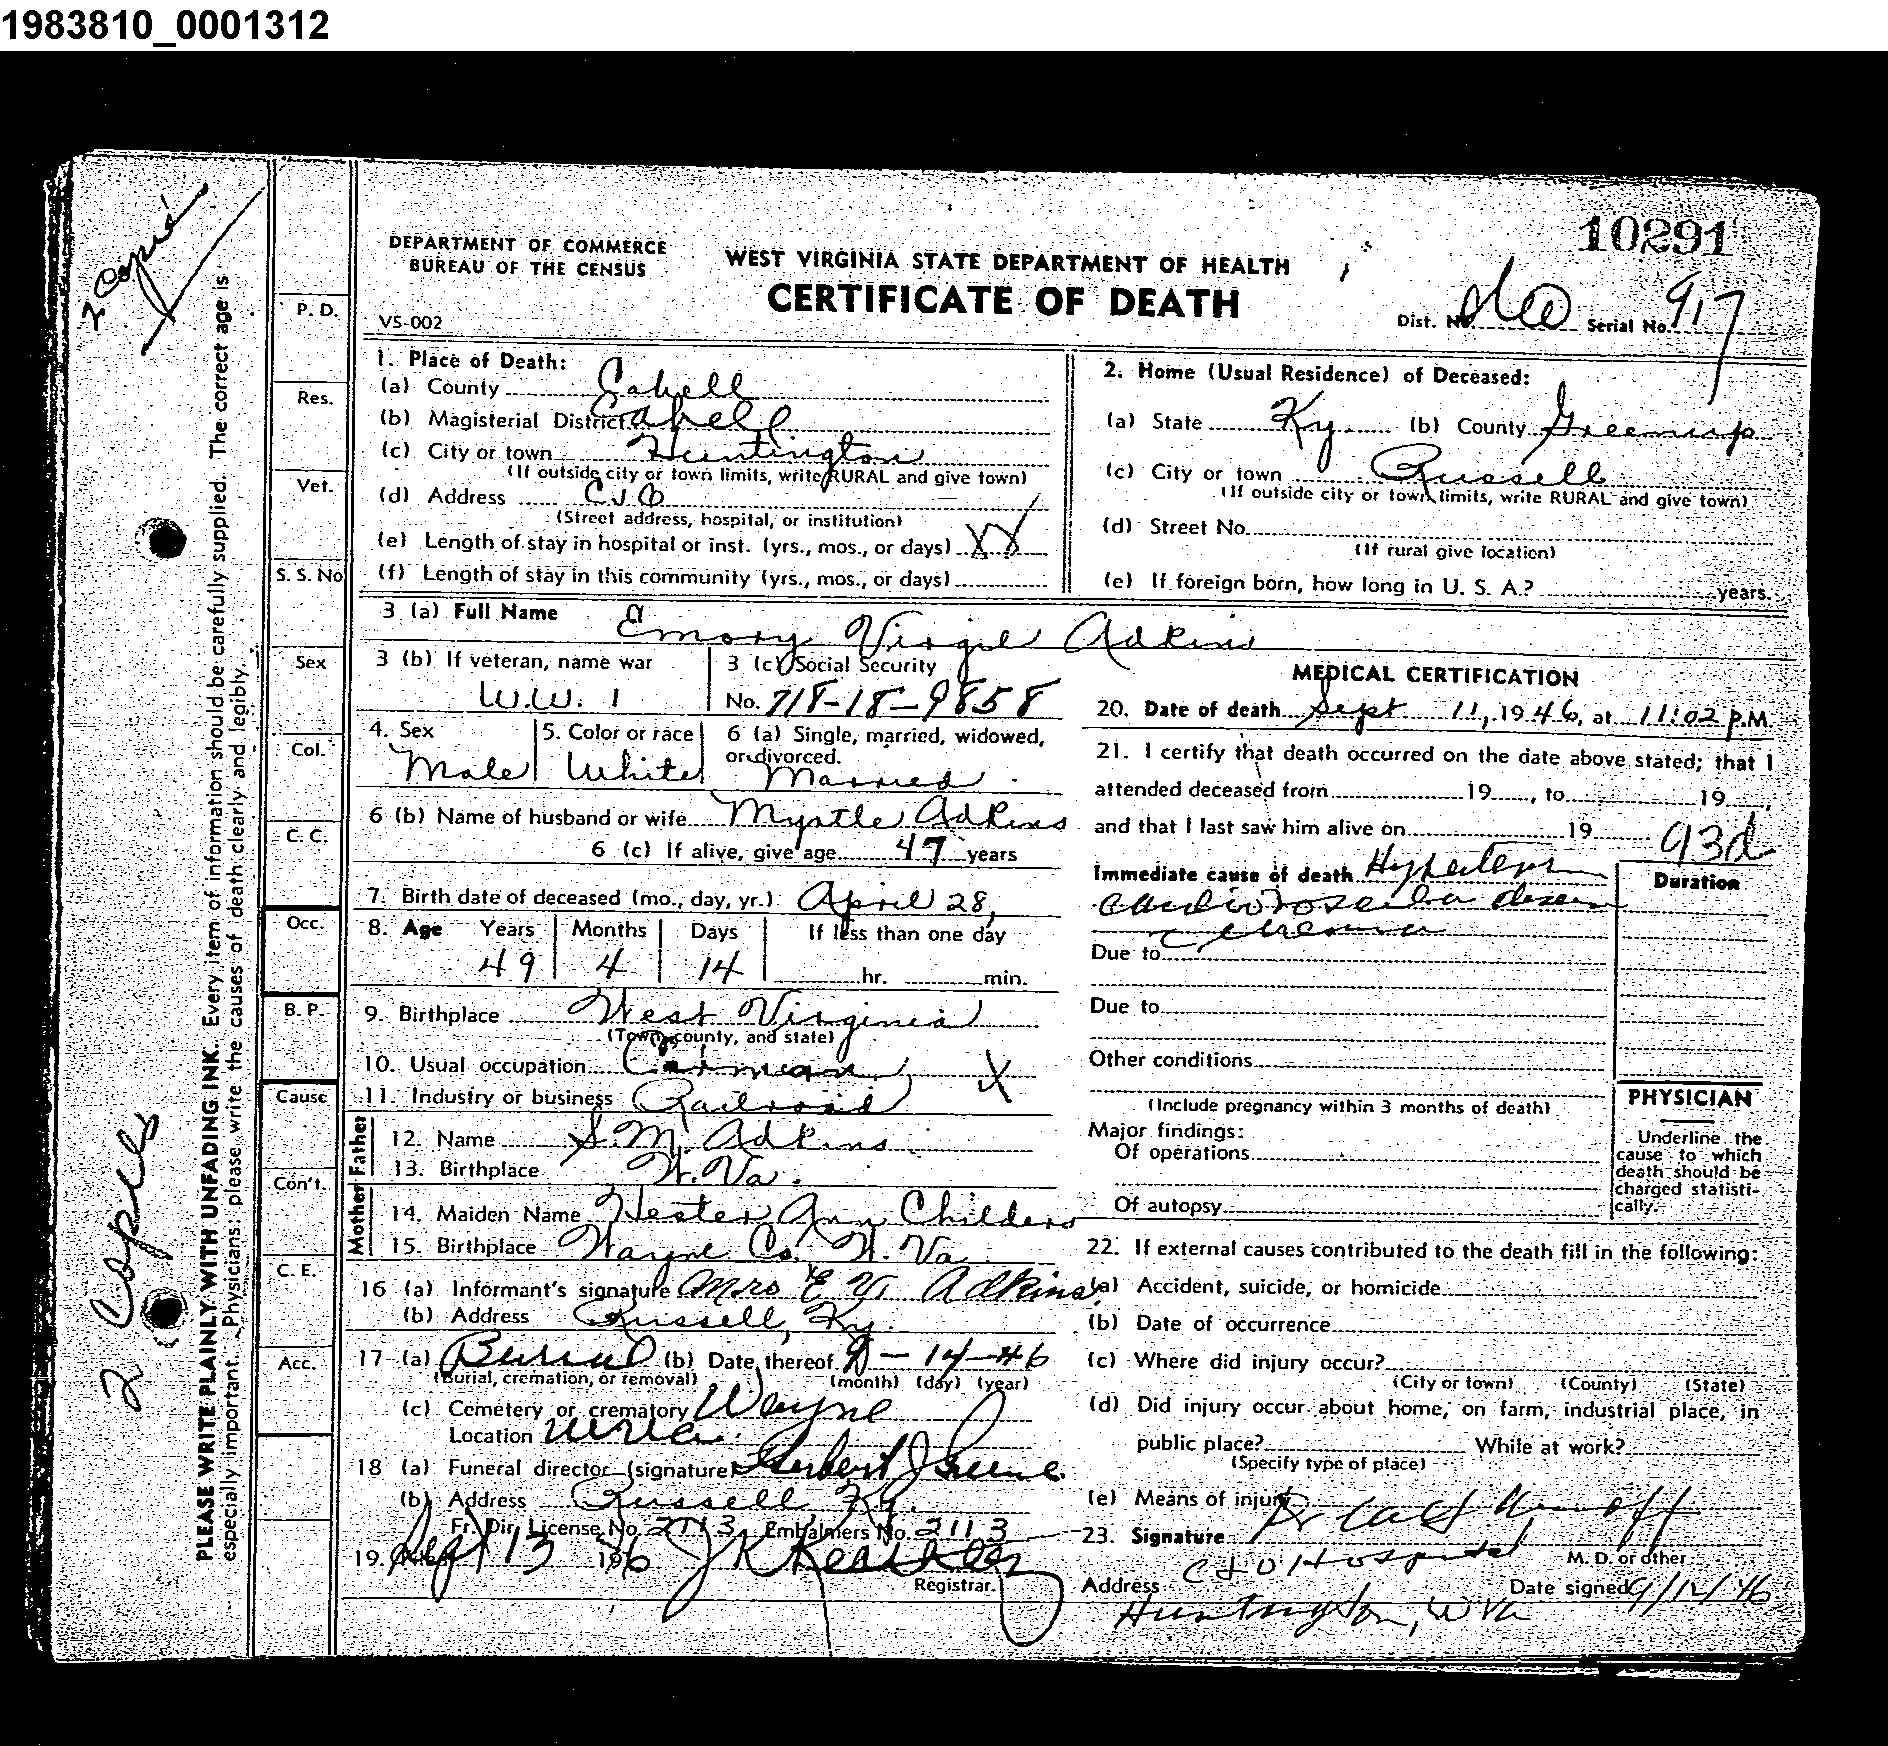 1983810_0001312
2 Copies
10291
DEPARTMENT OF COMMERCE
BUREAU OF THE CENSUS
WEST VIRGINIA STATE DEPARTMENT OF HEALTH
CERTIFICATE OF DEATH
VS-002
Dist. No. Serial No. 917
1. Place of Death:
(a) County Cabell
(b) Magisterial District Cabell
(c) City or town Huntington
(If outside city or town limits, write RURAL and give town)
(d) Address
(Street address, hospital, or institution)
(e) Length of stay in hospital or inst. (yrs., mos., or days)
(f) Length of stay in this community (yrs., mos., or days)
2. Home (Usual Residence) of Deceased:
(a) State Ky. (b) County Greenup
(c) City or town Russell
(If outside city or town limits, write RURAL and give town)
(d) Street No.
(If rural give location)
(e) If foreign born, how long in U. S. A.? years.
3 (a) Full Name Emory Virgil Adkins
3 (b) If veteran, name war
W.W. 1
3 (c) Social Security
No. 718-18-9858
4. Sex
Male
5. Color or race
White
6 (a) Single, married, widowed,
or divorced.
Married
6 (b) Name of husband or wife Myrtle Adkins
6 (c) If alive, give age 47 years
7. Birth date of deceased (mo., day, yr.) April 28,
8. Age Years Months Days If less than one day
49 4 14 hr. min.
9. Birthplace West Virginia
(Town, county, and state)
10. Usual occupation Carman X
11. Industry or business Railroad
Father
12. Name S.M. Adkins
13. Birthplace W. Va.
Mother
14. Maiden Name Hester Ann Childers
15. Birthplace Wayne Co. W. Va.
16 (a) Informant's signature Mrs E V. Adkins
(b) Address Russell, Ky.
17 (a) Burial (b) Date thereof 9-14-46
(Burial, cremation, or removal) (month) (day) (year)
(c) Cemetery or crematory Wayne
Location W Va.
18 (a) Funeral director (signature)
(b) Address Russell Ky.
Fr. Dir. License No. 2113 Embalmers No. 2113
19. Sept 13 1946
Registrar.
MEDICAL CERTIFICATION
20. Date of death Sept 11, 1946, at 11:02 P.M.
21. I certify that death occurred on the date above stated; that I
attended deceased from 19 , to 19 ,
and that I last saw him alive on 19
93d
Immediate cause of death
Duration
Due to
Due to
Other conditions
(Include pregnancy within 3 months of death)
Major findings:
Of operations
Of autopsy
PHYSICIAN
Underline the
cause to which
death should be
charged statisti-
cally.
22. If external causes contributed to the death fill in the following:
(a) Accident, suicide, or homicide
(b) Date of occurrence
(c) Where did injury occur?
(City or town) (County) (State)
(d) Did injury occur about home, on farm, industrial place, in
public place? While at work?
(Specify type of place)
(e) Means of injury
23. Signature
M. D. or other
Address C & O Hospital Date signed 9/12/46
Huntington, W Va
P. D.
Res.
Vet.
S. S. No
Sex
Col.
C. C.
Occ.
B. P.
Cause
Con't.
C. E.
Acc.
2 Copies
PLEASE WRITE PLAINLY WITH UNFADING INK. Every item of information should be carefully supplied. The correct age is
especially important. Physicians: please write the causes of death clearly and legibly.